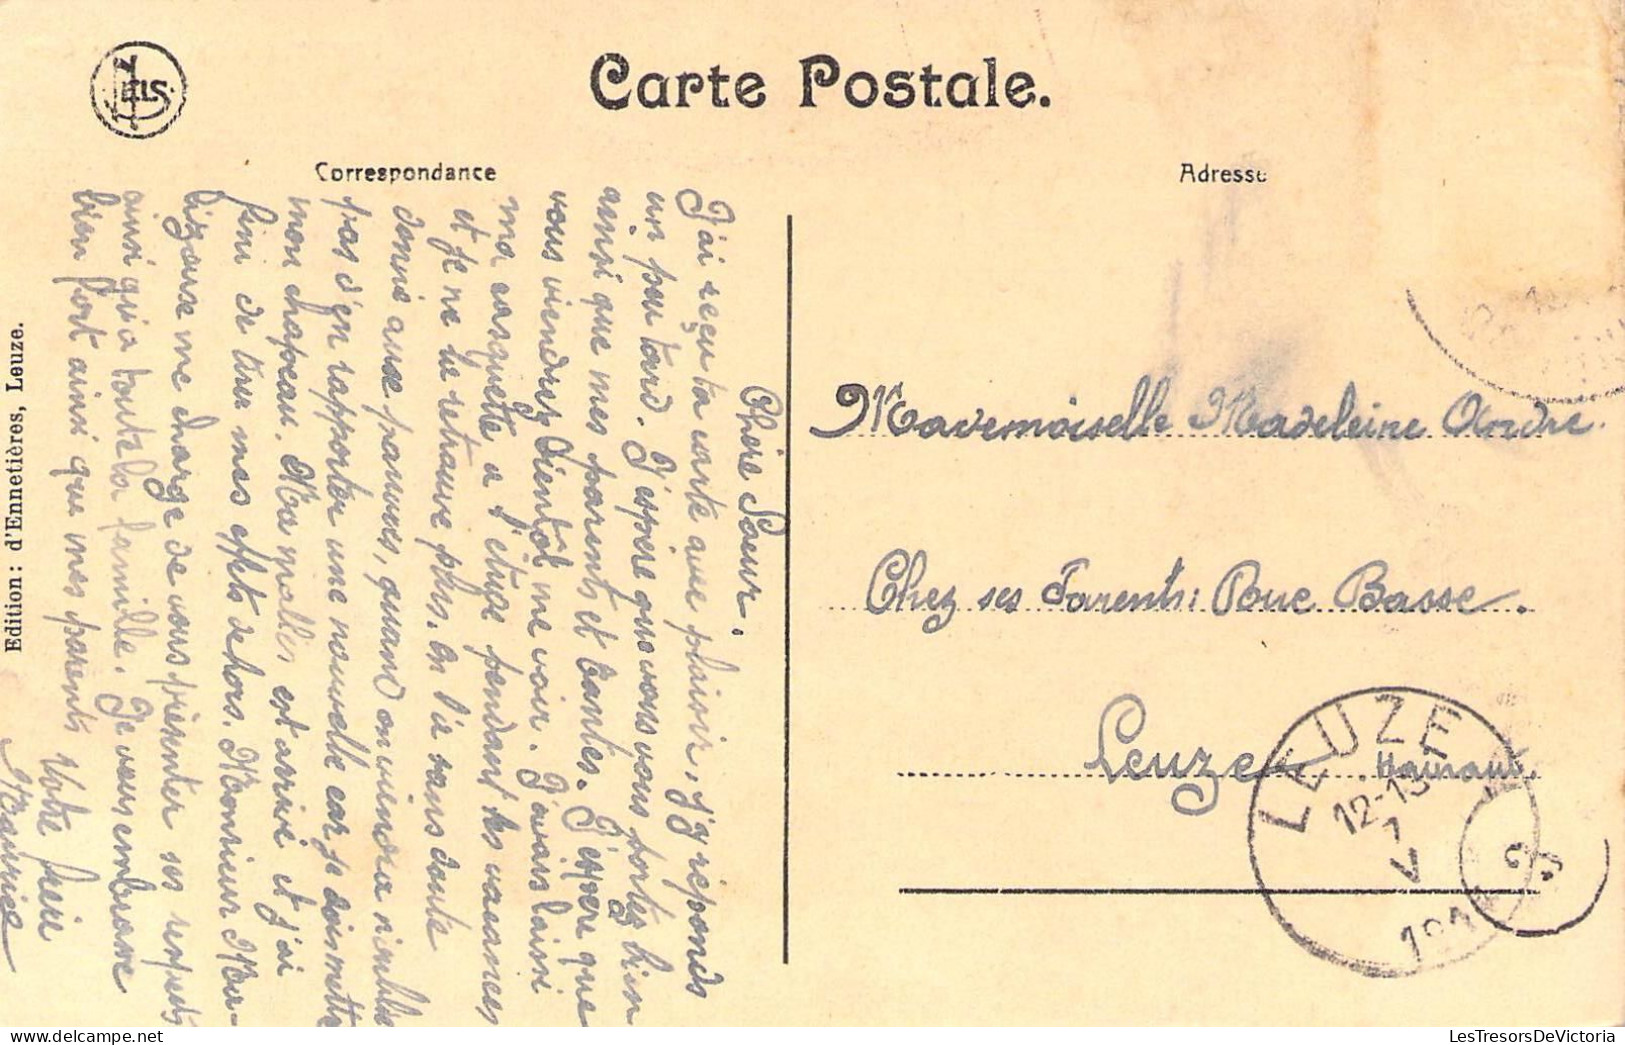 Carte Postale.
Correspondance
Adresse
Chère Sœur.
J'ai reçu ta carte avec plaisir, j'y réponds
un peu tard. J'espère que vous vous portez bien
ainsi que mes parents et tantes. J'espère que
vous viendrez bientôt me voir. J'avais laissé
ma casquette à l'étude pendant les vacances
et je ne la retrouve plus, on l'a sans doute
donné aux pauvres, quand on viendra
pas d'en rapporter une nouvelle car je dois mettre
mon chapeau. Ma malle est arrivé et j'ai
fini de tirer mes effets dehors. Monsieur
me charge de vous présenter ses respects
ainsi qu'a toute la famille. Je vous embrasse
bien fort ainsi que mes parents Votre frère
Maurice
Edition: d'Ennetières, Leuze.
Mademoiselle Madeleine André.
Chez ses Parents: Rue Basse.
Leuze Hainaut.
LEUZE
12-13
1
V